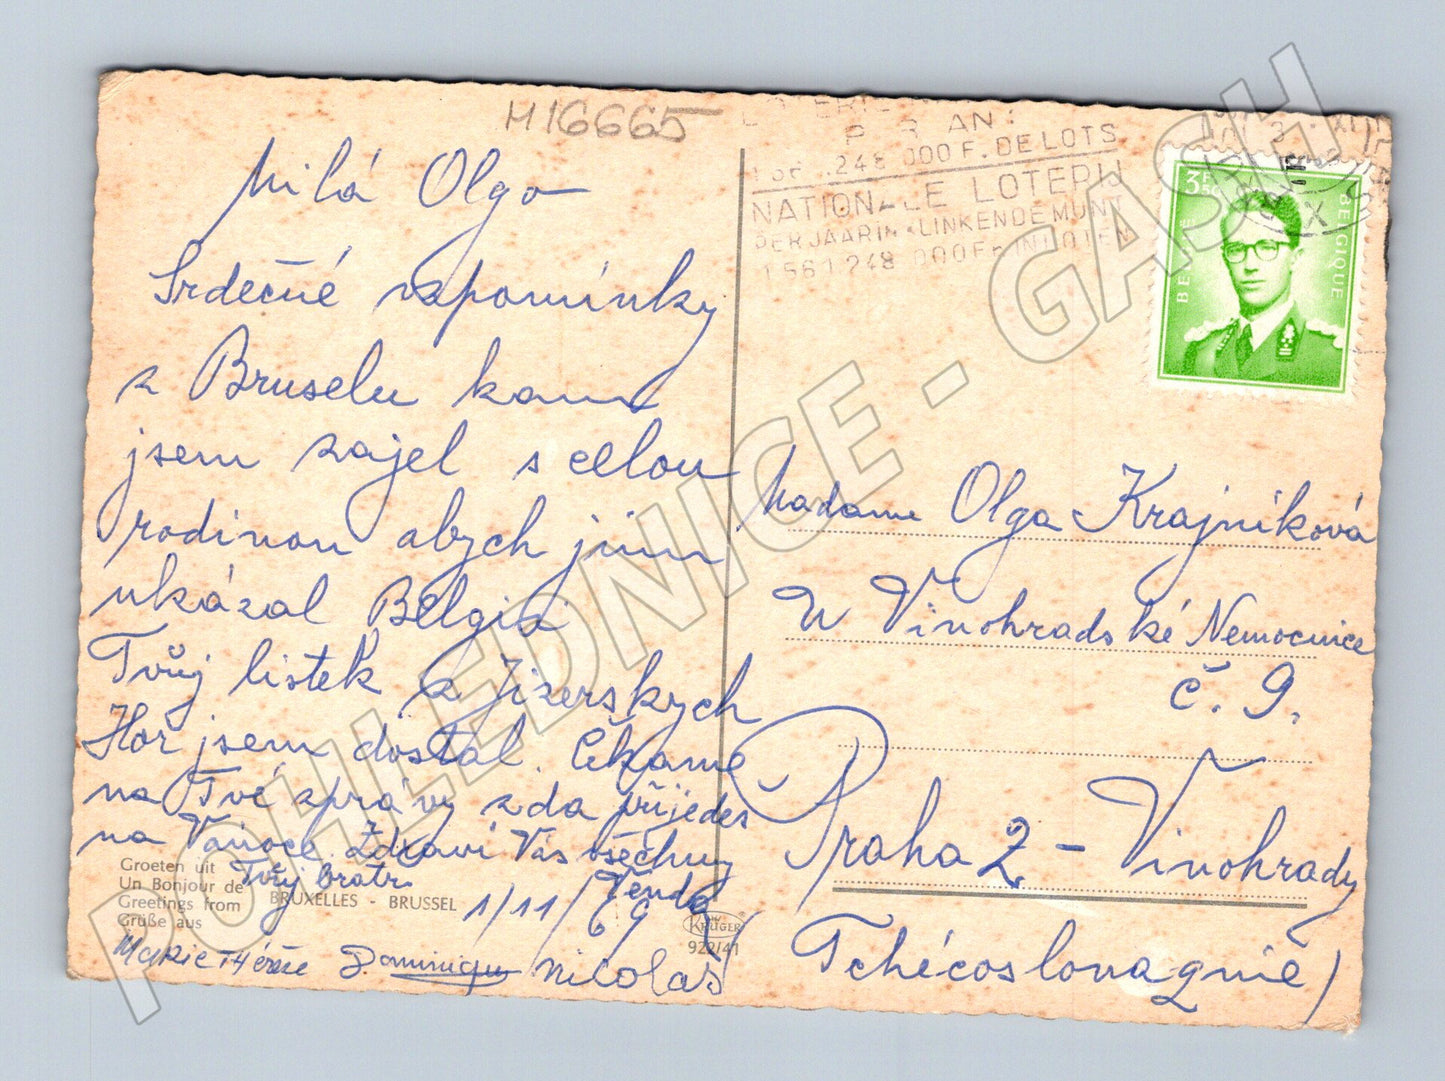 M16665
Milá Olgo
Srdečné vzpomínky
z Bruselu kam
jsem zajel s celou
rodinou abych jim
ukázal Belgii
Tvůj lístek z Jizerských
Hor jsem dostal. Čekáme
na Tvé zprávy zda přijedeš
na Vánoce. Zdraví Vás všechny
Tvůj bratr Venda
1/11/69
Marie Thérèse Dominique Nicolas
Groeten uit
Un Bonjour de
Greetings from
Grüße aus
BRUXELLES - BRUSSEL
KRÜGER
922/41
PAR AN:
1 561 248 000 F. DE LOTS
NATIONALE LOTERIJ
PER JAAR IN KLINKENDE MUNT
1 561 248 000 Fr IN LOTEN
3F50
BELGIE
BELGIQUE
X
Madame Olga Krajníková
u Vinohradské Nemocnice
č. 9.
Praha 2 - Vinohrady
Tchécoslovaquie
POHLEDNICE - GASH